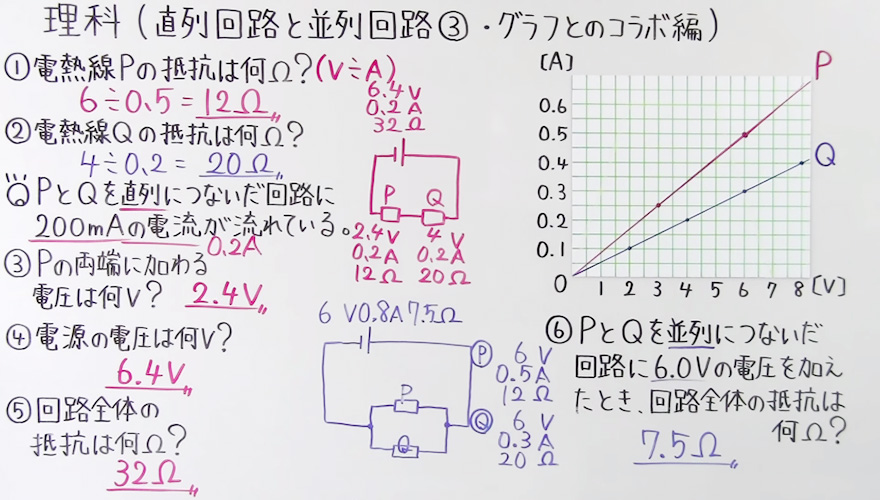 理科(直列回路と並列回路③・グラフとのコラボ編)
①電熱線Pの抵抗は何Ω?(V÷A)
6÷0.5=12Ω
②電熱線Qの抵抗は何Ω?
4÷0.2=20Ω
PとQを直列につないだ回路に
200mAの電流が流れている。
0.2A
③Pの両端に加わる
電圧は何V? 2.4V
④電源の電圧は何V?
6.4V
⑤回路全体の
抵抗は何Ω?
32Ω
6.4V
0.2A
32Ω
P Q
2.4V 4V
0.2A 0.2A
12Ω 20Ω
6V0.8A7.5Ω
P
Q
Ⓟ 6V
0.5A
12Ω
Ⓠ 6V
0.3A
20Ω
[A]
P
Q
0.6
0.5
0.4
0.3
0.2
0.1
0 1 2 3 4 5 6 7 8 [V]
⑥PとQを並列につないだ
回路に6.0Vの電圧を加え
たとき、回路全体の抵抗は
何Ω?
7.5Ω